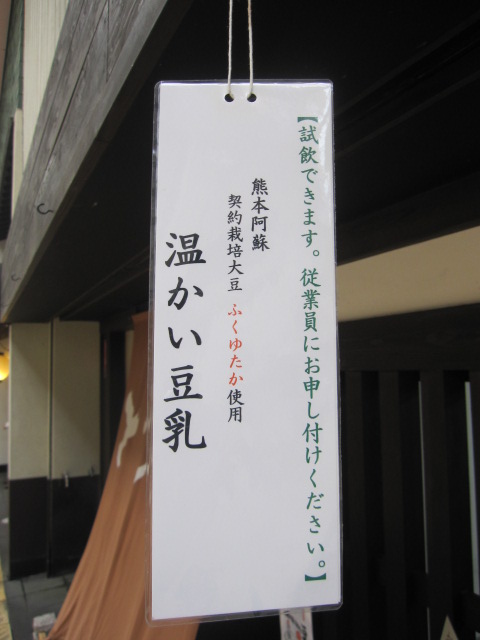 【試飲できます。従業員にお申し付けください。】
熊本阿蘇
契約栽培大豆 ふくゆたか使用
温かい豆乳